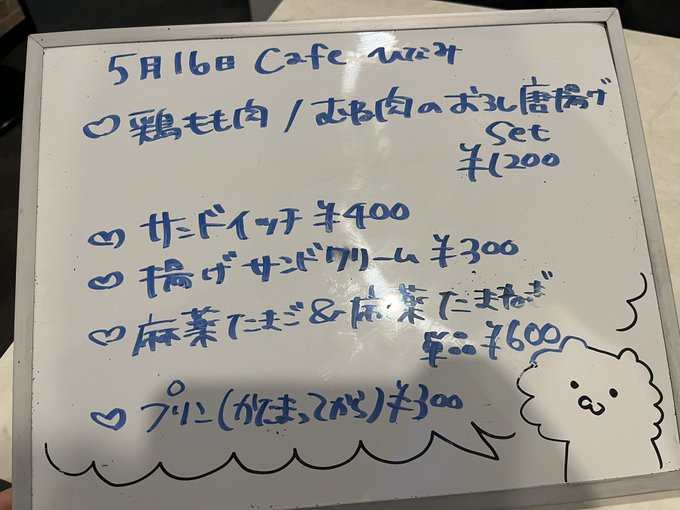 5月16日 Cafe ひなみ
♡鶏もも肉/むね肉のおろし唐揚げ
Set
¥1200
♡サンドイッチ ¥400
♡揚げサンドクリーム ¥300
♡麻薬たまご&麻薬たまねぎ
単品 ¥600
♡プリン(かたまってから) ¥300